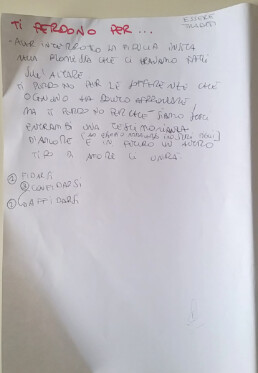 TI PERDONO PER...
ESSERE
- AVER INTERROTTO LA
NELLA PROMESSA CHE CI ERAVAMO FATTI
SULL'ALTARE
TI PERDONO PER LE SOFFERENTE CHE
OGNUNO HA DOVUTO AFFRONTARE
MA TI PERDONO PERCHE' SIAMO STATI
ENTRAMBI UNA TESTIMONIANZA
D'AMORE E IN FUTURO UN ALTRO
TIPO DI AMORE CI UNIRÀ
FIDARSI
CONFIDARSI
AFFIDARSI